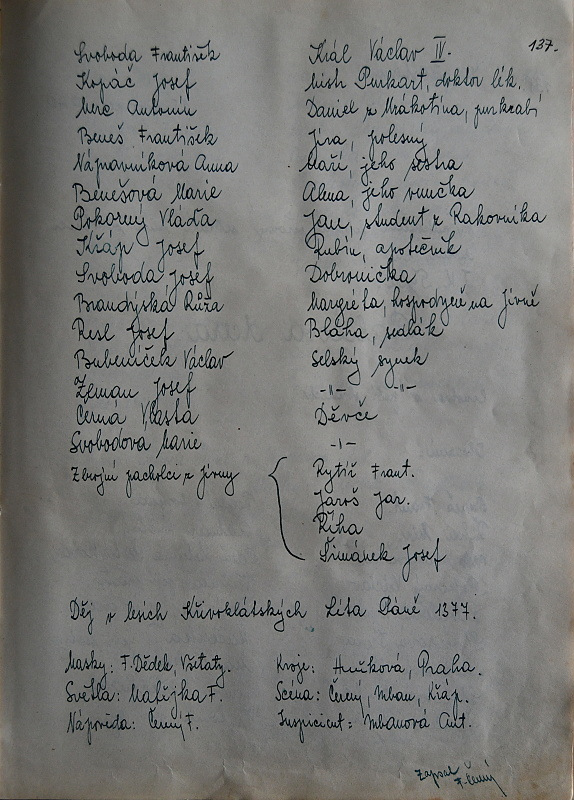 137.
Svoboda František Král Václav IV.
Kopáč Josef Mistr Purkart, doktor lék.
Merc Antonín Daniel z Mákotína, purkrabí
Beneš František Jíra, polesný
Nápravníková Anna Maří, jeho sestra
Benešová Marie Alena, jeho vnučka
Pokorný Vláďa Jan, student z Rakovníka
Křáp Josef Rubín, apotečník
Svoboda Josef Dobronička
Brandýská Růža Margréta, hospodyně na Jivně
Resl Josef Bláha, sedlák
Bubeníček Václav Selský synek
Zeman Josef -"- -"-
Černá Vlasta Děvče
Svobodova Marie -"-
Zbrojní pacholci z Jivny Rytíř Frant.
Jaroš Jar.
Říha
Šimánek Josef
Děj v lesích Křivoklátských Léta Páně 1377.
Masky: F. Dědek, Všetaty. Kroje: Praha.
Světla: Matějka F. Scéna: Černý, Mban, Křáp.
Nápověda: Černý F. Inspicient: Mbanová Ant.
Zapsal
F. Černý